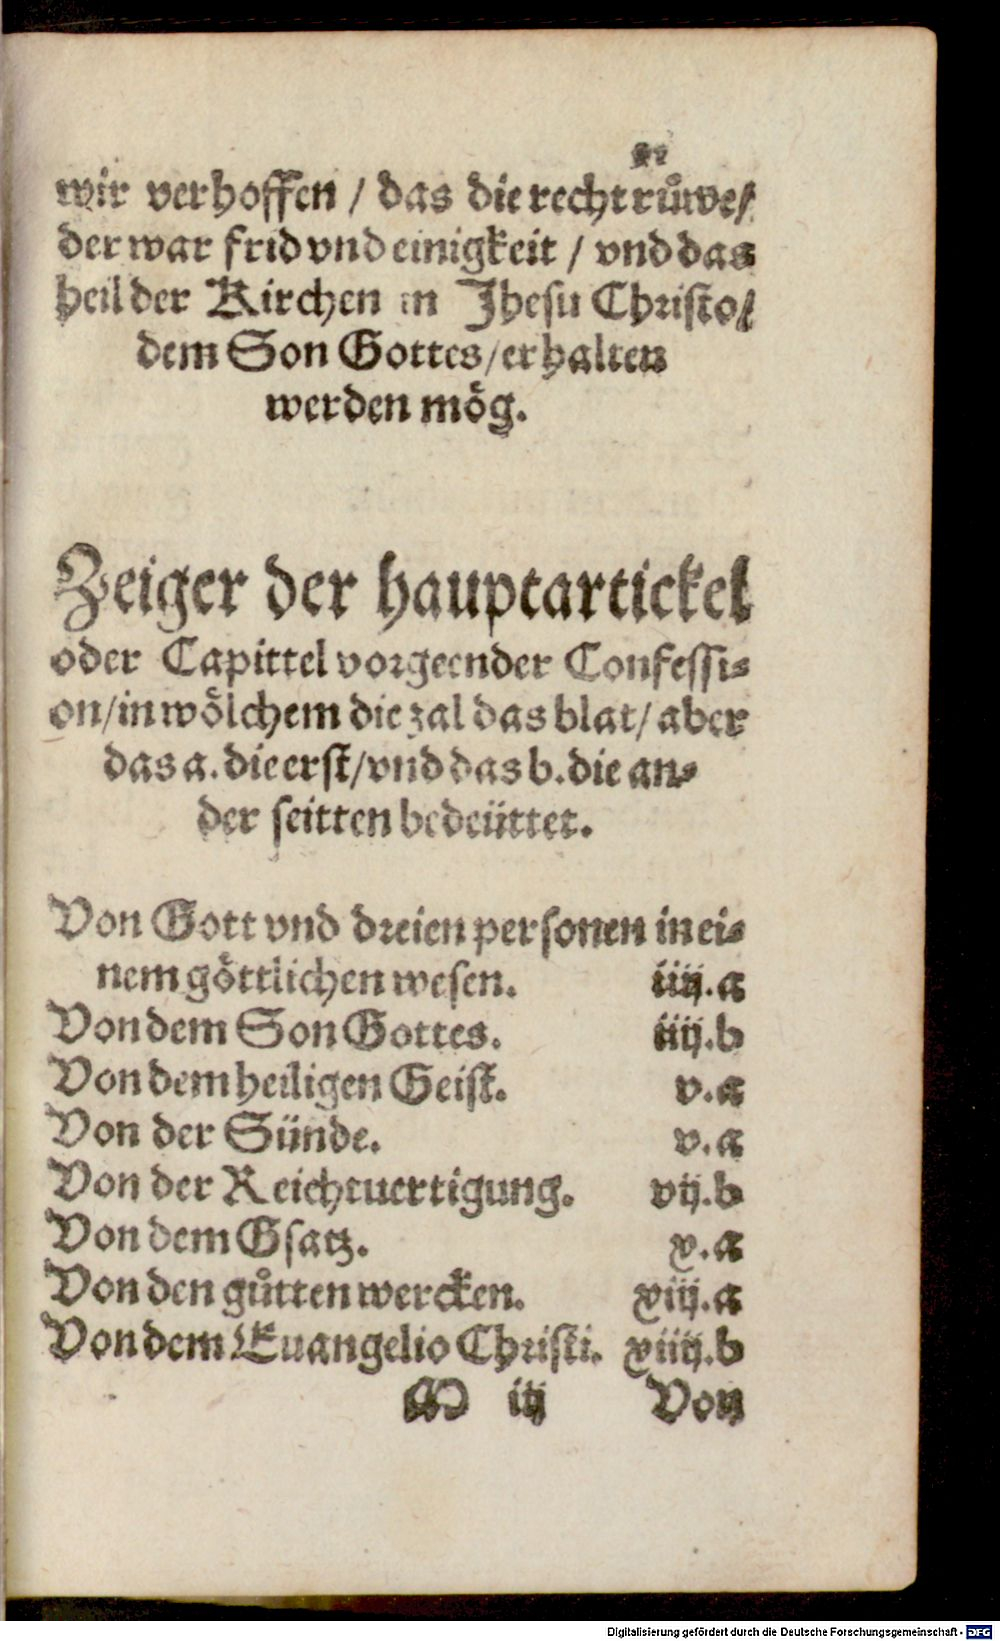 wir verhoffen / das die recht růwe /
der war frid vnd einigkeit / vnd das
heil der Kirchen in Jhesu Christo /
dem Son Gottes / erhalten
werden mög.
Zeiger der hauptartickel
oder Capittel vorgeender Confessi-
on / in wölchem die zal das blat / aber
das a. die erst / vnd das b. die an-
der seitten bedeüttet.
Von Gott vnd dreien personen in ei-
nem göttlichen wesen. iiij.a
Von dem Son Gottes. iiij.b
Von dem heiligen Geist. v.a
Von der Sünde. v.a
Von der Reichtuertigung. vij.b
Von dem Gsatz. x.a
Von den gůtten wercken. xiij.a
Von dem Euangelio Christi. xiiij.b
M iij Von
Digitalisierung gefördert durch die Deutsche Forschungsgemeinschaft - DFG